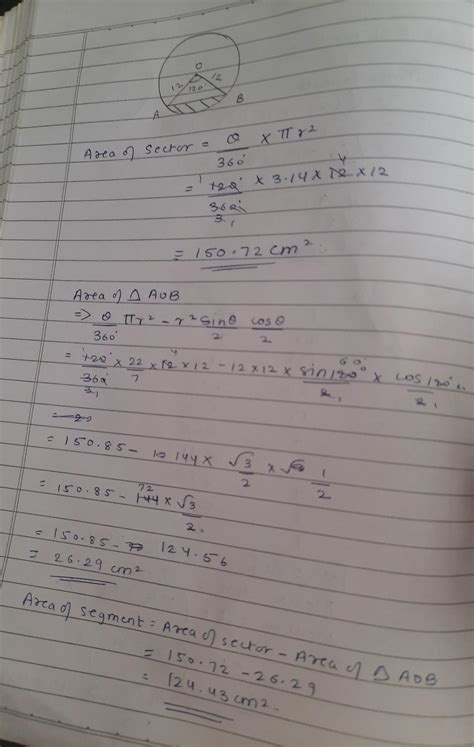 O
12 12
120
A B
Area of Sector = θ/360° × πr²
= 120°/360° × 3.14 × 12 × 12
1 4
3 1
= 150.72 cm²
Area of △ AOB
=> θ/360° πr² - r² sinθ/2 cosθ/2
= 120°/360° × 22/7 × 12 × 12 - 12 × 12 × sin120°/2 × cos120°/2
4 60
3 1 1 1
= 150.85 - 144 × √3/2 × 1/2
= 150.85 - 144 × √3/2
72
= 150.85 - 124.56
= 26.29 cm²
Area of segment = Area of sector - Area of △ AOB
= 150.72 - 26.29
= 124.43 cm².